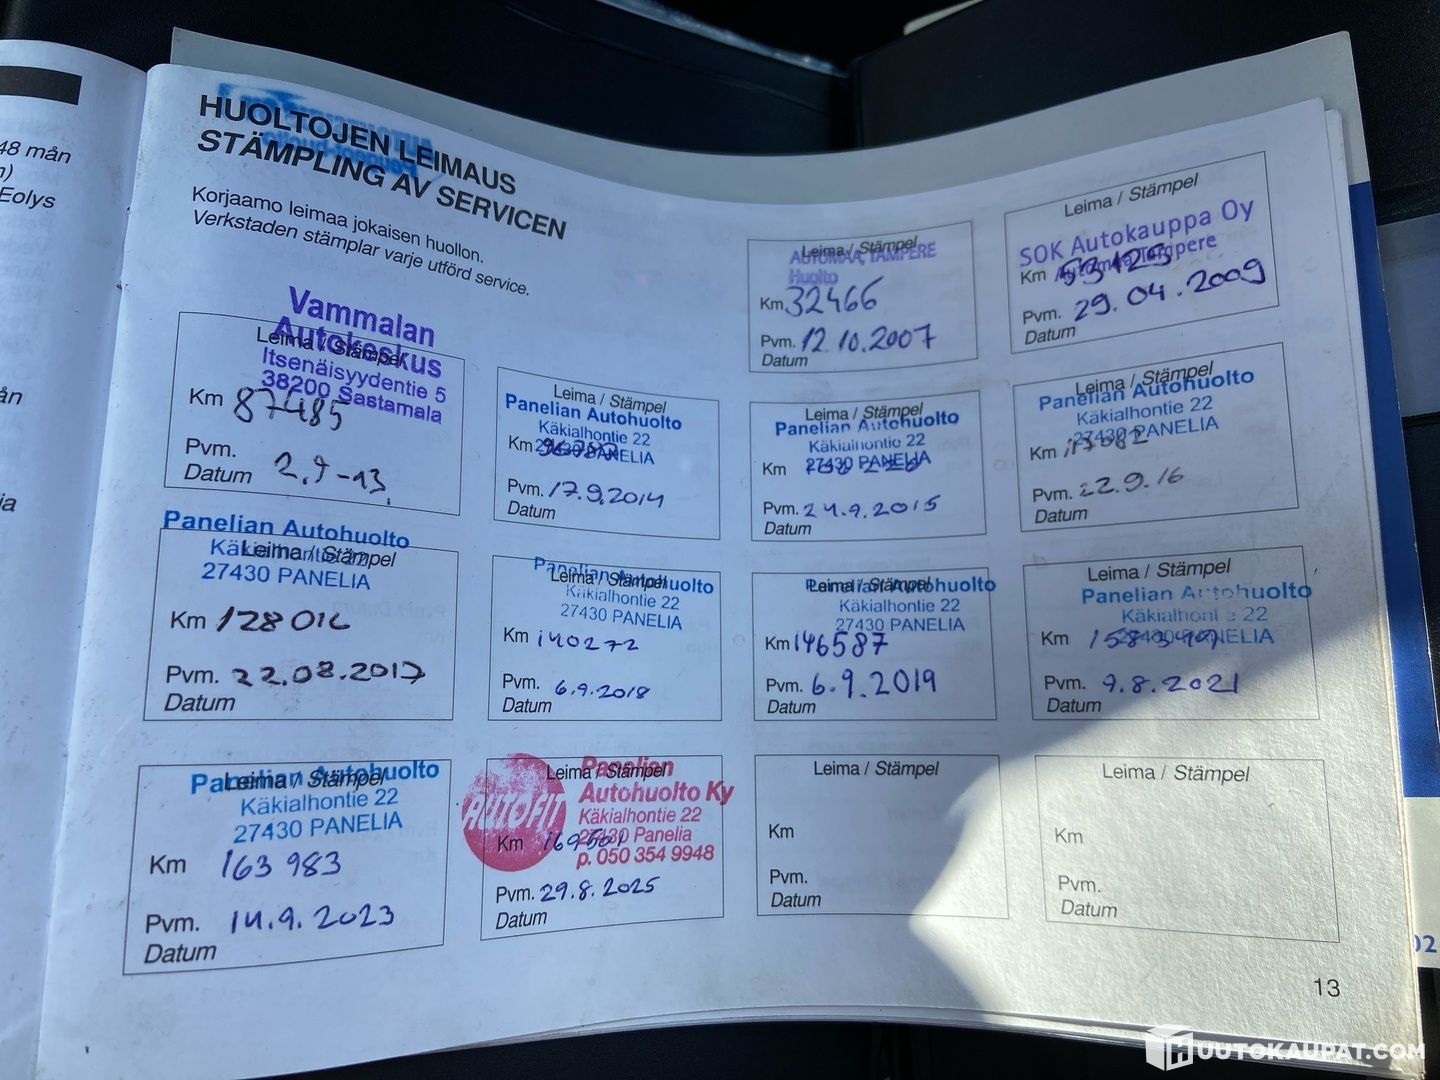 48 mån
Eolys
HUOLTOJEN LEIMAUS
STÄMPLING AV SERVICEN
Korjaamo leimaa jokaisen huollon.
Verkstaden stämplar varje utförd service.
Leima / Stämpel
AUTOMAA, TAMPERE
Huolto
Km 32466
Pvm. 12.10.2007
Datum
Leima / Stämpel
SOK Autokauppa Oy
Automaa Tampere
Km 53125
Pvm. 29.04.2009
Datum
Vammalan
Autokeskus
Leima / Stämpel
Itsenäisyydentie 5
38200 Sastamala
Km 87485
Pvm.
Datum 2.9-13
Leima / Stämpel
Panelian Autohuolto
Käkialhontie 22
27430 PANELIA
Km
Pvm. 17.9.2014
Datum
Leima / Stämpel
Panelian Autohuolto
Käkialhontie 22
27430 PANELIA
Km
Pvm. 24.9.2015
Datum
Leima / Stämpel
Panelian Autohuolto
Käkialhontie 22
27430 PANELIA
Km
Pvm. 22.9.16
Datum
Panelian Autohuolto
Leima / Stämpel
Käkialhontie 22
27430 PANELIA
Km 128012
Pvm. 22.08.2017
Datum
Panelian Autohuolto
Leima / Stämpel
Käkialhontie 22
27430 PANELIA
Km 140272
Pvm. 6.9.2018
Datum
Panelian Autohuolto
Leima / Stämpel
Käkialhontie 22
27430 PANELIA
Km 146587
Pvm. 6.9.2019
Datum
Leima / Stämpel
Panelian Autohuolto
Käkialhontie 22
27430 PANELIA
Km
Pvm. 9.8.2021
Datum
Panelian Autohuolto
Leima / Stämpel
Käkialhontie 22
27430 PANELIA
Km 163 983
Pvm. 14.9.2023
Datum
AUTOFIT
Leima / Stämpel
Panelian
Autohuolto Ky
Käkialhontie 22
27430 Panelia
p. 050 354 9948
Km 169501
Pvm. 29.8.2025
Datum
Leima / Stämpel
Km
Pvm.
Datum
Leima / Stämpel
Km
Pvm.
Datum
13
HUUTOKAUPAT.COM